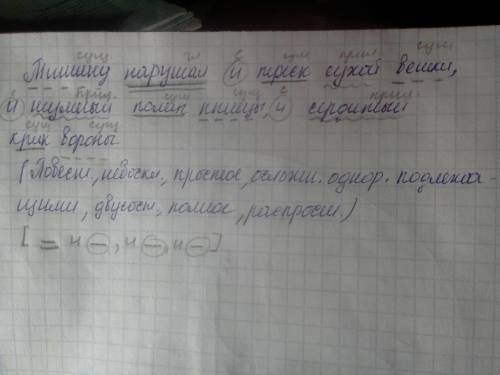 сущ гл с сущ прил сущ
Тишину нарушал и треск сухой ветки,
с прил сущ сущ с прил
и шумный полёт птицы, и
сущ сущ
крик вороны.
(Повест., невоскл, простое, осложн. однор. подлежа-
щими, двусост, полное, распрост.)
[= и –, и –, и –]